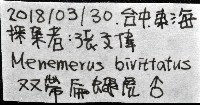 2018/03/30.台中東海
採集者:張文偉
Menemerus bivittatus
双帶扁蠅虎♂